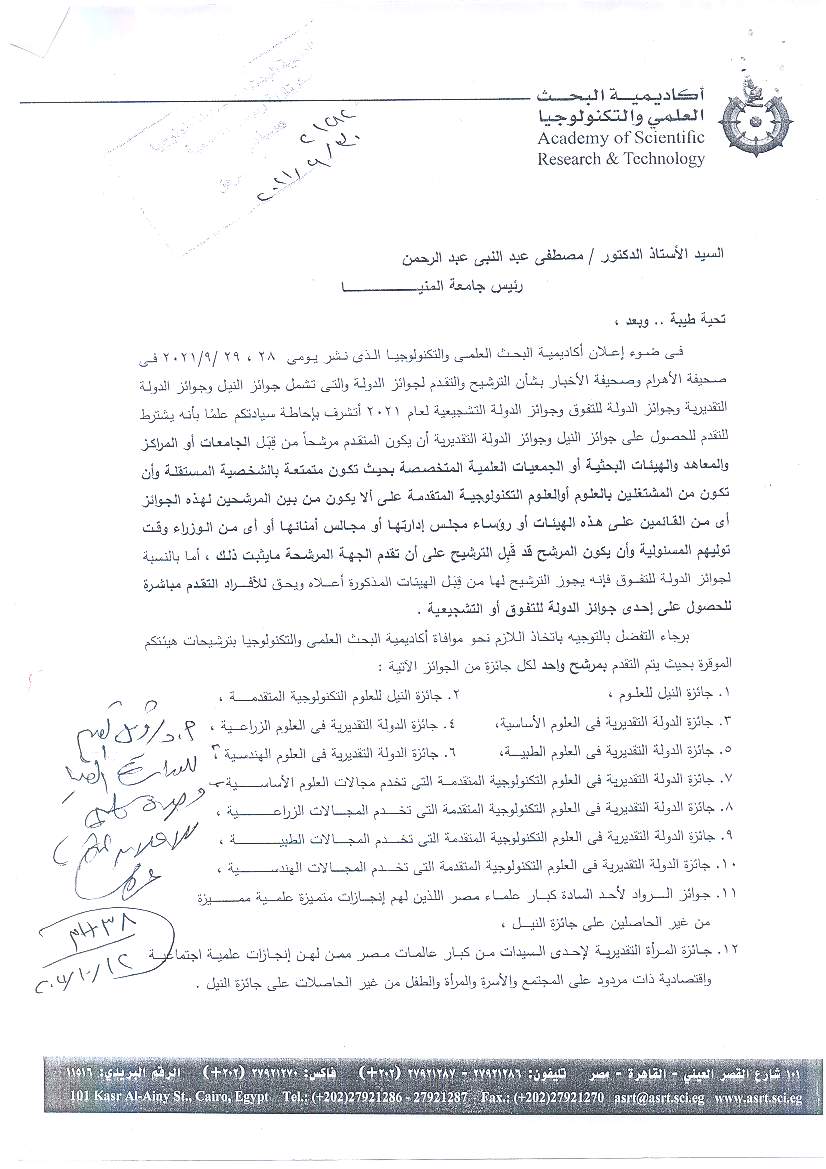 أكاديمية البحث
العلمي والتكنولوجيا
Academy of Scientific
Research & Technology
٢٠٢١/٩/٣٠
السيد الأستاذ الدكتور / مصطفى عبد النبى عبد الرحمن
رئيس جامعة المنيــــــــــــــا
تحية طيبة .. وبعد ،
فى ضوء إعلان أكاديمية البحث العلمى والتكنولوجيا الذى نشر يومى ٢٨ ، ٢٠٢١/٩/٢٩ فى
صحيفة الأهرام وصحيفة الأخبار بشأن الترشيح والتقدم لجوائز الدولة والتى تشمل جوائز النيل وجوائز الدولة
التقديرية وجوائز الدولة للتفوق وجوائز الدولة التشجيعية لعام ٢٠٢١ أتشرف بإحاطة سيادتكم علمًا بأنه يشترط
للتقدم للحصول على جوائز النيل وجوائز الدولة التقديرية أن يكون المتقدم مرشحاً من قِبَل الجامعات أو المراكز
والمعاهد والهيئات البحثية أو الجمعيات العلمية المتخصصة بحيث تكون متمتعة بالشخصية المستقلة وأن
تكون من المشتغلين بالعلوم أوالعلوم التكنولوجية المتقدمة على ألا يكون من بين المرشحين لهذه الجوائز
أى من القائمين على هذه الهيئات أو رؤساء مجلس إدارتها أو مجالس أمنائها أو أى من الوزراء وقت
توليهم المسئولية وأن يكون المرشح قد قَبِل الترشيح على أن تقدم الجهة المرشحة مايثبت ذلك ، أما بالنسبة
لجوائز الدولة للتفوق فإنه يجوز الترشيح لها من قِبَل الهيئات المذكورة أعلاه ويحق للأفراد التقدم مباشرة
للحصول على إحدى جوائز الدولة للتفوق أو التشجيعية .
برجاء التفضل بالتوجيه باتخاذ اللازم نحو موافاة أكاديمية البحث العلمى والتكنولوجيا بترشيحات هيئتكم
الموقرة بحيث يتم التقدم بمرشح واحد لكل جائزة من الجوائز الآتية :
١. جائزة النيل للعلوم ، ٢. جائزة النيل للعلوم التكنولوجية المتقدمـــة ،
٣. جائزة الدولة التقديرية فى العلوم الأساسية، ٤. جائزة الدولة التقديرية فى العلوم الزراعـية ،
٥. جائزة الدولة التقديرية فى العلوم الطبيـة، ٦. جائزة الدولة التقديرية فى العلوم الهندسية ،
٧. جائزة الدولة التقديرية فى العلوم التكنولوجية المتقدمـة التى تخدم مجالات العلوم الأساســية ،
٨. جائزة الدولة التقديرية فى العلوم التكنولوجية المتقدمة التى تخـدم المجـالات الزراعـــــية ،
٩. جائزة الدولة التقديرية فى العلوم التكنولوجية المتقدمة التى تخـدم المجـالات الطبيــــة ،
١٠. جائزة الدولة التقديرية فى العلوم التكنولوجية المتقدمة التى تخـدم المجـالات الهندســـية ،
١١. جوائز الـرواد لأحد السادة كبار علماء مصر اللذين لهم إنجازات متميزة علمية مميـزة
من غير الحاصلين على جائزة النيـل ،
١٢. جائزة المرأة التقديرية لإحدى السيدات من كبار عالمات مصر ممن لهن إنجازات علمية اجتماعية
واقتصادية ذات مردود على المجتمع والأسرة والمرأة والطفل من غير الحاصلات على جائزة النيل .
١٠١ شارع القصر العيني - القاهرة - مصر تليفون: ٢٧٩٢١٢٨٦ - ٢٧٩٢١٢٨٧ (٢٠٢+) فاكس: ٢٧٩٢١٢٧٠ (٢٠٢+) الرقم البريدي: ١١٥١٦
101 Kasr Al-Ainy St., Cairo, Egypt Tel.: (+202)27921286 - 27921287 - Fax.: (+202)27921270 asrt@asrt.sci.eg www.asrt.sci.eg